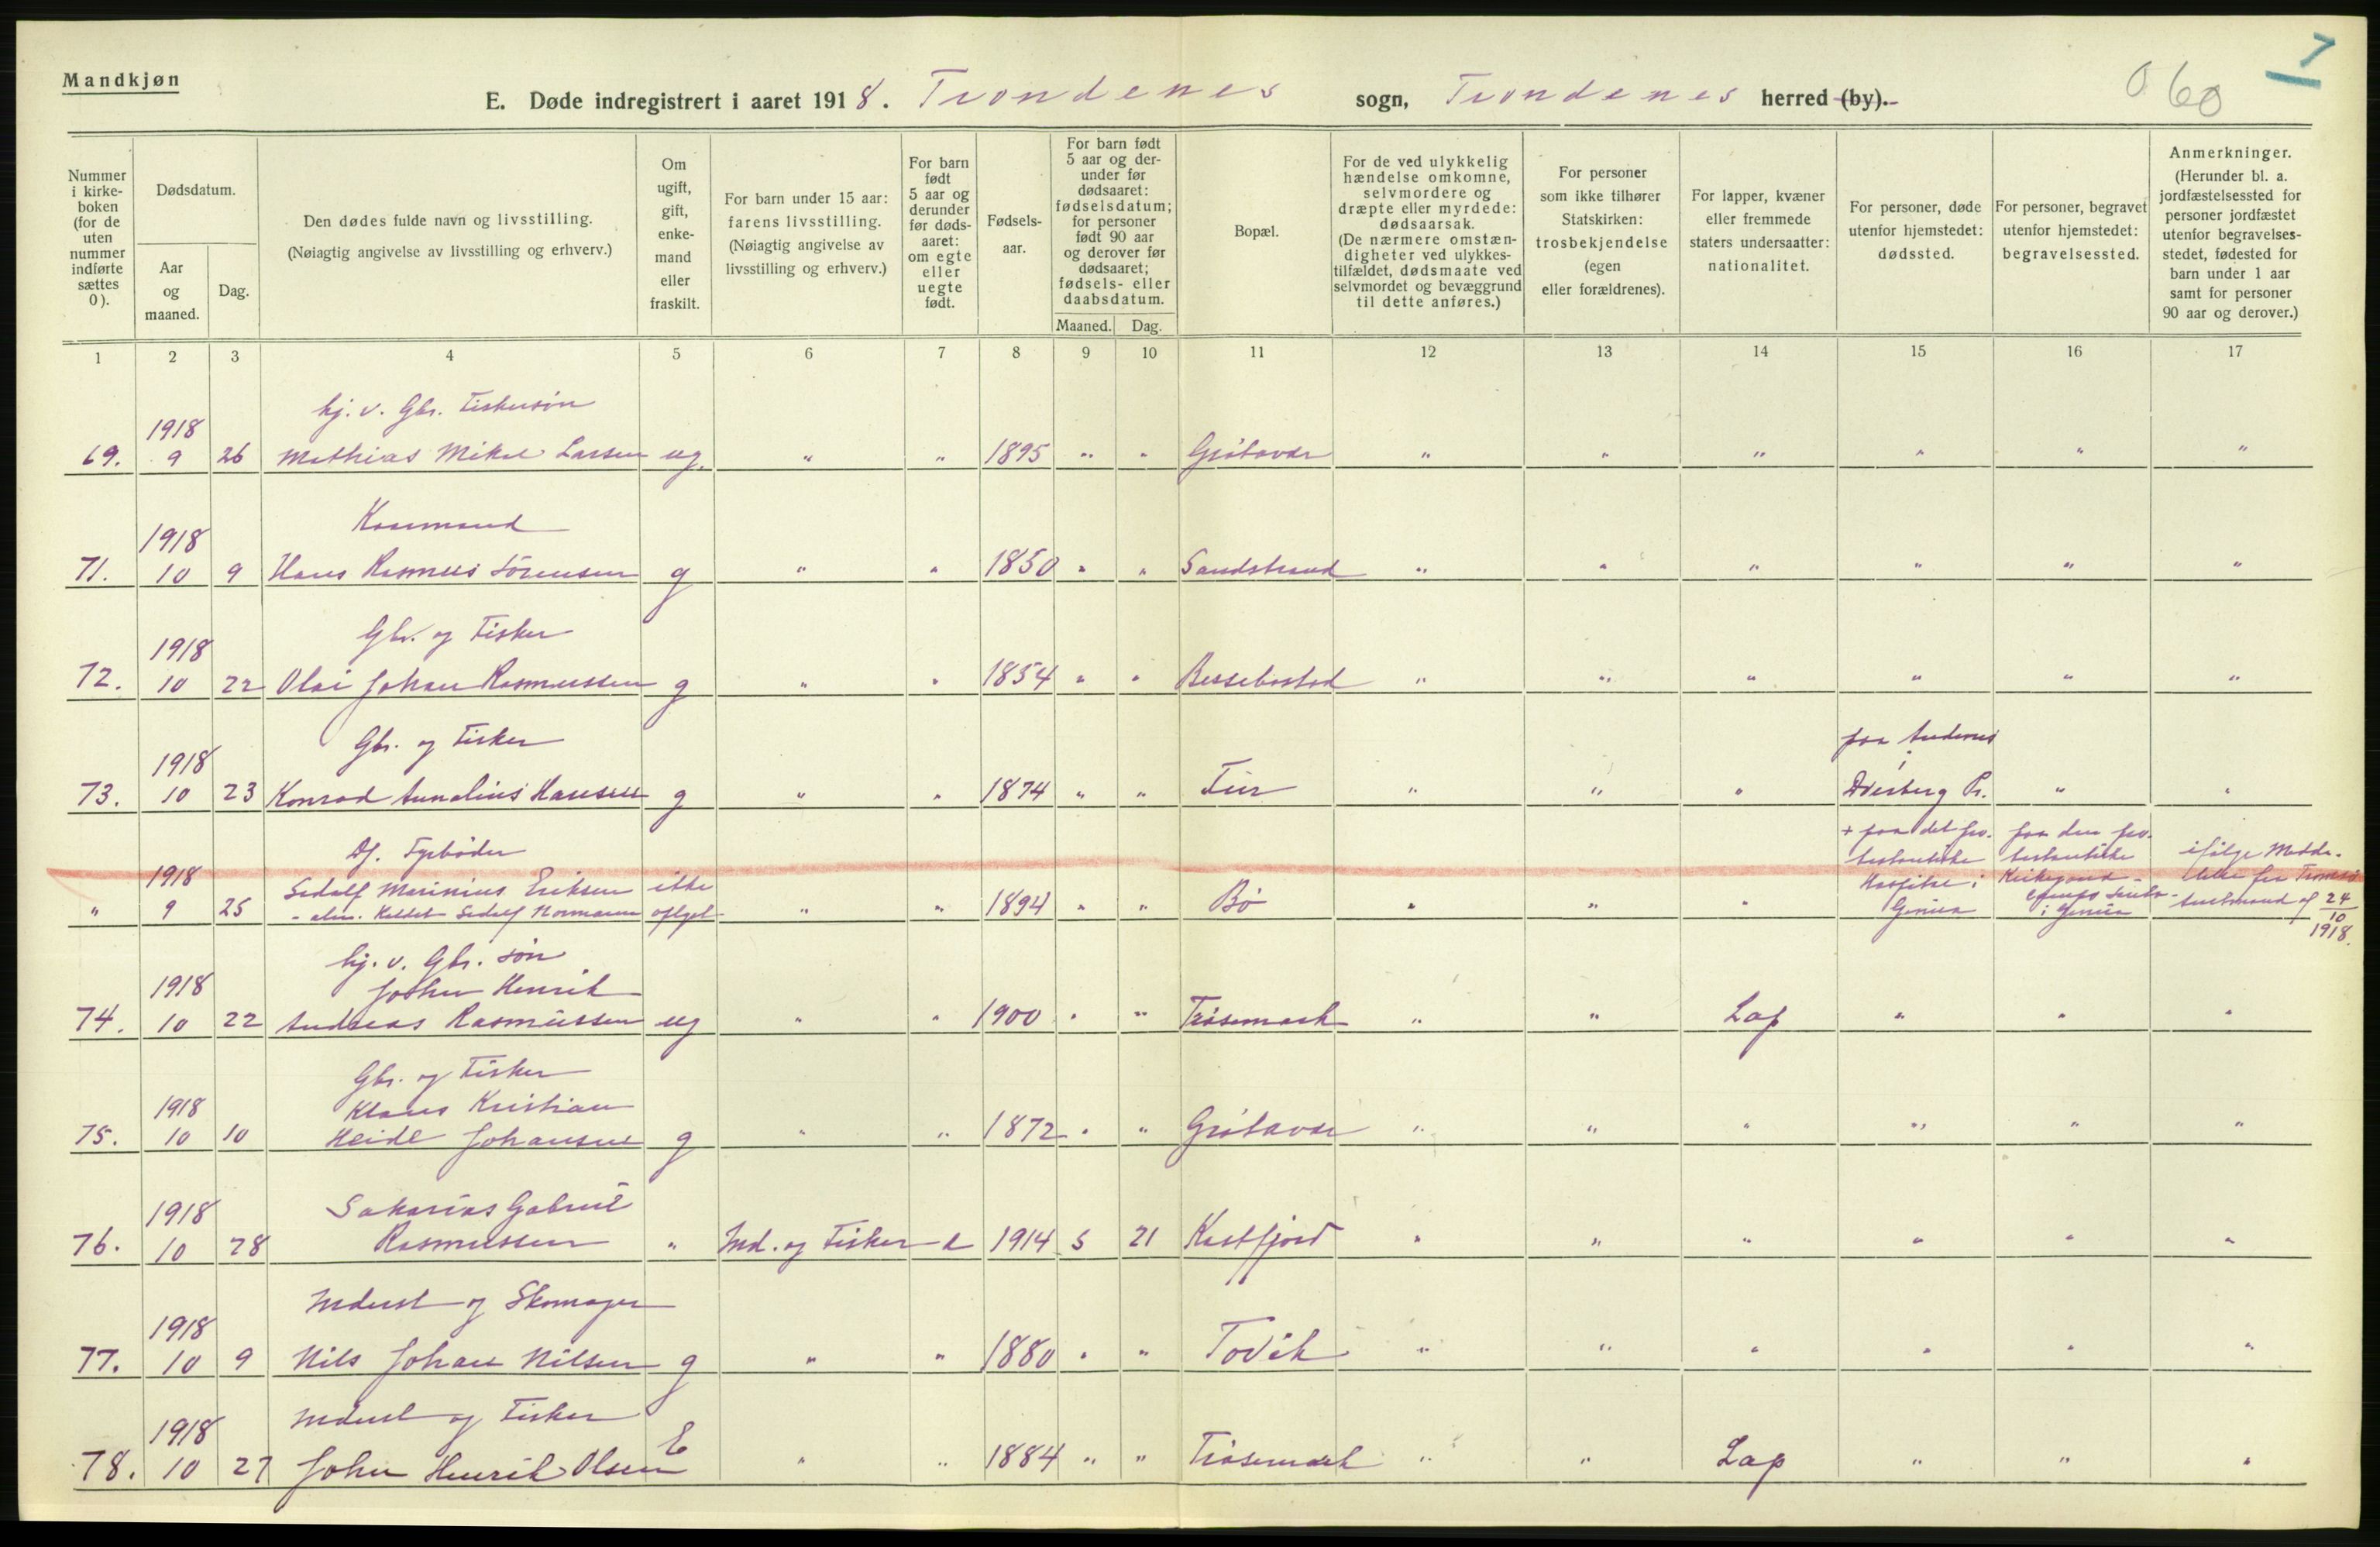 Mandkjøn
E. Døde indregistrert i aaret 1918. Trondenes sogn, Trondenes herred (by).
060
7
Nummer i kirkeboken (for de uten nummer indførte sættes 0).
Dødsdatum.
Aar og maaned.
Dag.
Den dødes fulde navn og livsstilling.
(Nøiagtig angivelse av livsstilling og erhverv.)
Om ugift, gift, enkemand eller fraskilt.
For barn under 15 aar: farens livsstilling.
(Nøiagtig angivelse av livsstilling og erhverv.)
For barn født 5 aar og derunder før dødsaaret: om egte eller uegte født.
Fødselsaar.
For barn født 5 aar og derunder før dødsaaret: fødselsdatum; for personer født 90 aar og derover før dødsaaret; fødsels- eller daabsdatum.
Maaned. Dag.
Bopæl.
For de ved ulykkelig hændelse omkomne, selvmordere og dræpte eller myrdede: dødsaarsak.
(De nærmere omstændigheter ved ulykkestilfældet, dødsmaate ved selvmordet og bevæggrund til dette anføres.)
For personer som ikke tilhører Statskirken: trosbekjendelse (egen eller forældrenes).
For lapper, kvæner eller fremmede staters undersaatter: nationalitet.
For personer, døde utenfor hjemstedet: dødssted.
For personer, begravet utenfor hjemstedet: begravelsessted.
Anmerkninger.
(Herunder bl. a. jordfæstelsessted for personer jordfæstet utenfor begravelsesstedet, fødested for barn under 1 aar samt for personer 90 aar og derover.)
1 2 3 4 5 6 7 8 9 10 11 12 13 14 15 16 17
hj. v. Gbr. Fiskersøn
1918
69. 9 26 Mathias Mikal Larsen ug. " " 1895 " " Grøtavær " " " " " "
Kaarmand
1918
71. 10 9 Hans Rasmus Sörensen g " " 1850 " " Sandstrand " " " " " "
Gbr. og Fisker
1918
72. 10 22 Olai Johan Rasmussen g " " 1854 " " Bessebostad " " " " " "
Gbr. og Fisker paa Andenes
1918 i
73. 10 23 Konrad Hansen g " " 1874 " " " " " Dverberg Pr. " "
Df. Fyrbøder + paa det pro- paa den pro-
1918 testantiske testantiske ifølge Medde-
Sedolf Marinius Eriksen ikke Hospital i Kirkegaard lelse fra Tromsø
" 9 25 - alm. kaldet Sedolf Normann opgit " " 1894 " " Bø " " " Genua i Genua af 24/10
1918.
hj. v. Gbr. søn
1918 Johan Henrik
74. 10 22 Andreas Rasmussen ug " " 1900 " " Trøsemark " " Lap " " "
Gbr. og Fisker
1918 Klaus Kristian
75. 10 10 Johansen g " " 1872 " " Grøtavær " " " " " "
1918 Sakarias Gabriel
76. 10 28 Rasmussen " Ind. og Fisker e 1914 5 21 Kastfjord " " " " " "
Inderst og Skomager
1918
77. 10 9 Nils Johan Nilsen g " " 1880 " " Tovik " " " " " "
Inderst og Fisker
1918
78. 10 27 Johan Henrik Olsen E " " 1884 " " Trøsemark " " Lap " " "